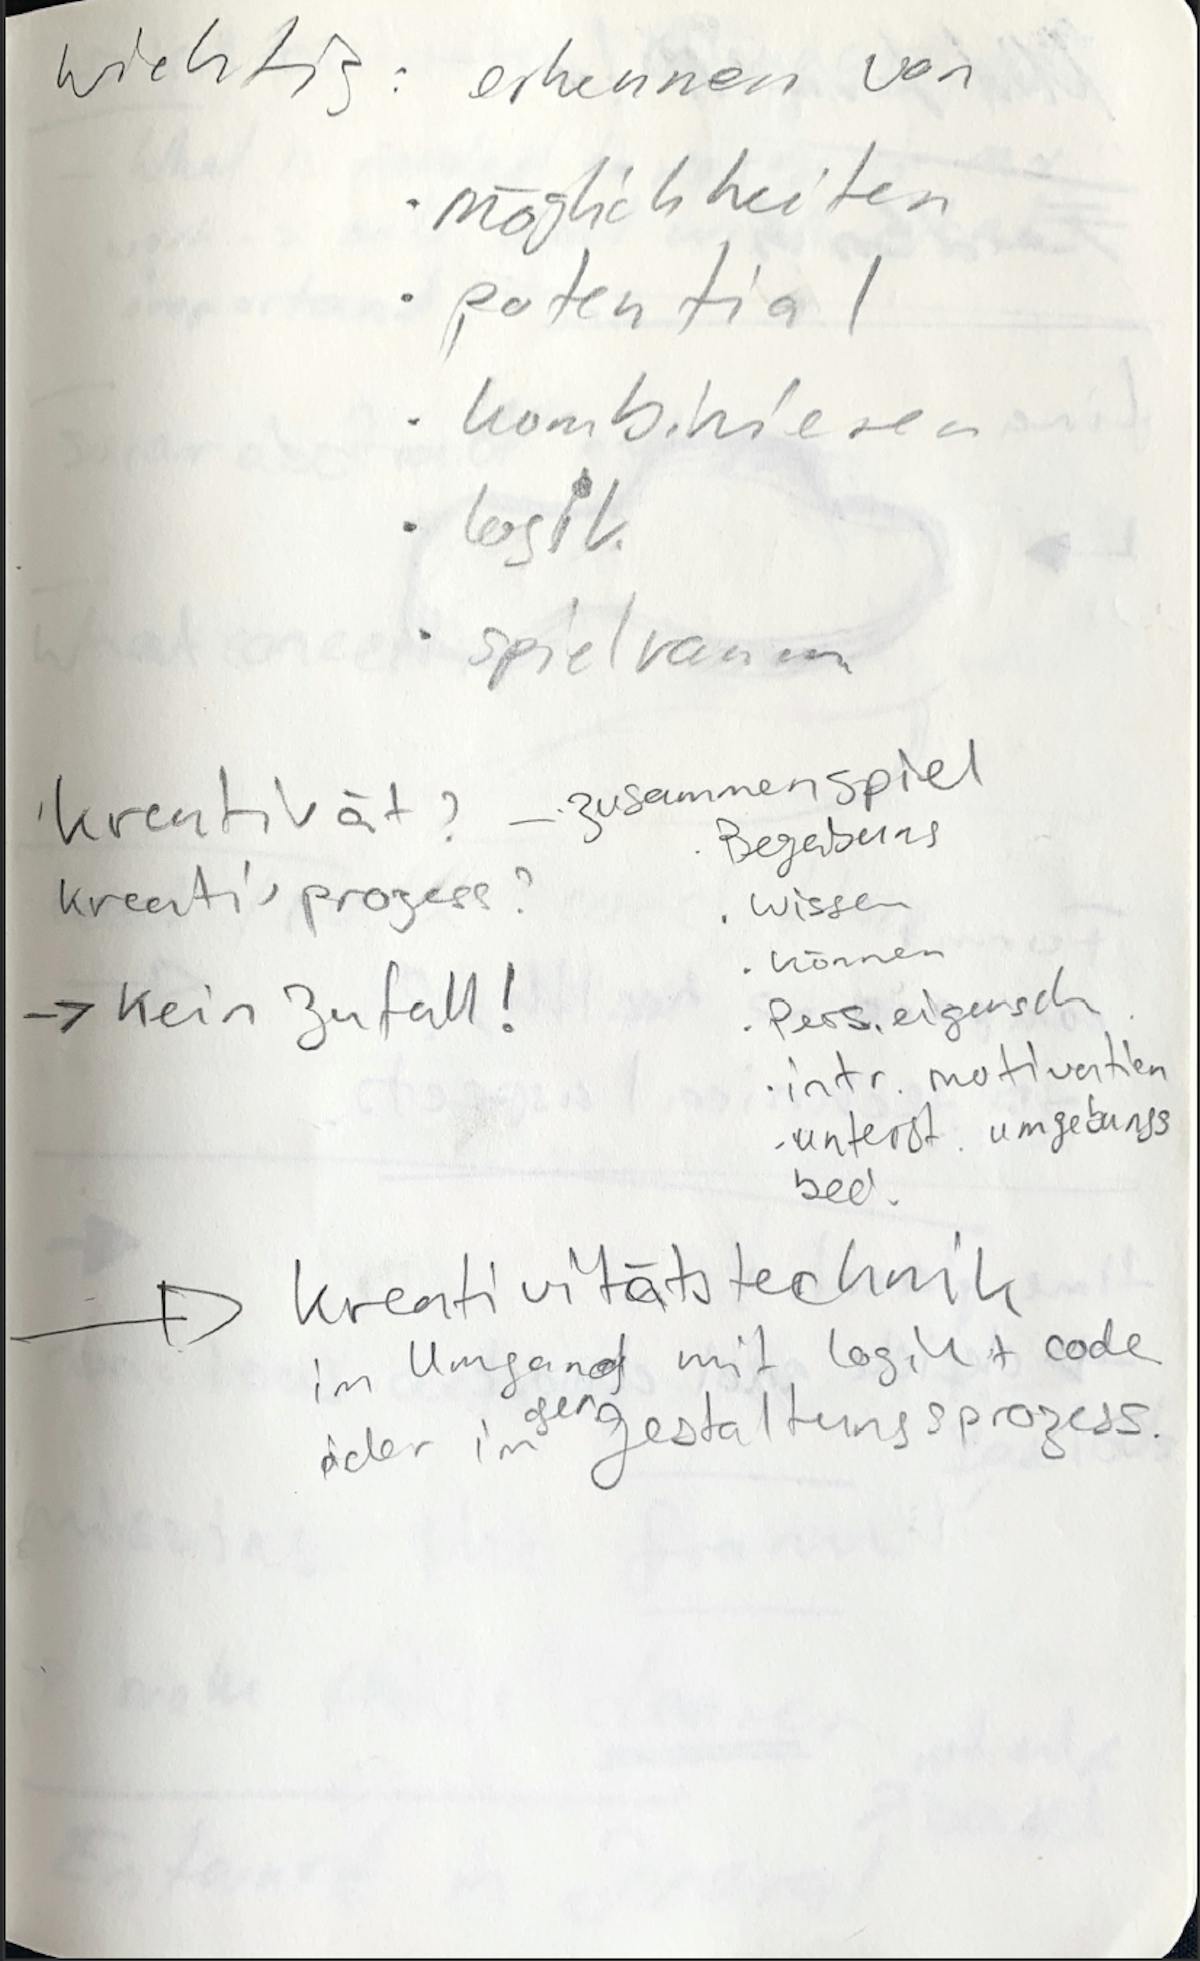 wichtig: erkennen von
· möglichkeiten
· potential
· kombinieren
· logik
· spielraum
kreativät? – zusammenspiel
· Begabung
kreativprozess?
· wissen
· können
→ Kein Zufall!
· Pers.eigensch.
· intr. motivation
· unterst. umgebungs
bed.
→ kreativitätstechnik
im Umgang mit logik + code
oder im gen gestaltungsprozess.